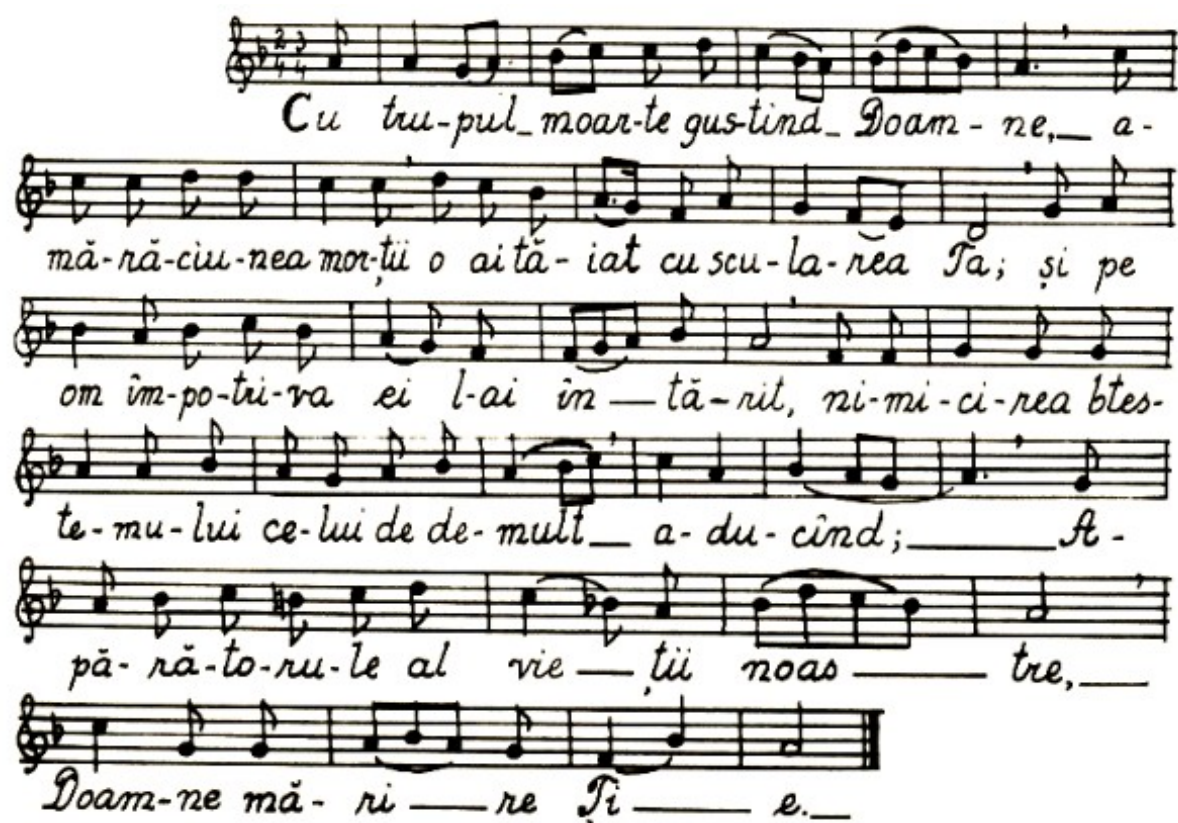 2 3
4 4
Cu tru-pul_ moar-te gus-tind_ Doam-ne,__ a-
mă-ră-ciu-nea mor-ții o ai tă-iat cu scu-la-rea Ta; și pe
om îm-po-tri-va ei l-ai în — tă-rit, ni-mi-ci-rea btes-
te-mu-lui ce-lui de de-mult__ a-du-cînd;______ A-
pă-ră-to-ru-le al vie — ții noas —— tre,__
Doam-ne mă-ri — re Ți —— e.__